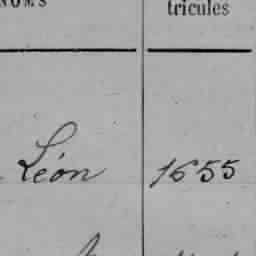 NOMS tricules
Léon 1655